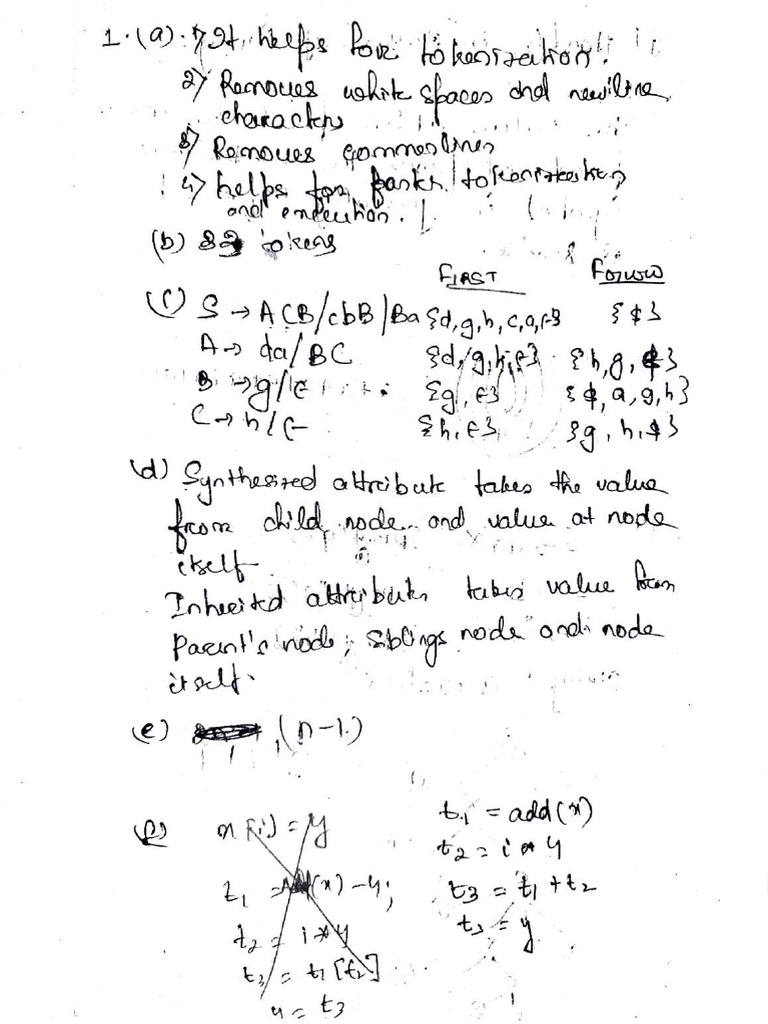 1.(a). 1) It helps for tokenization.
2) Removes white spaces and newline
characters
3) Removes commentlines
4) helps for faster tokenization
and execution.
(b) tokens
FIRST Follow
(c) S → ACB/cbB/Ba {d,g,h,c,a,ε} {$}
A → da/BC {d,g,h,ε} {h,g,$}
B → g/ε {g,ε} {$,a,g,h}
C → h/ε {h,ε} {g,h,$}
(d) Synthesized attribute takes the value
from child node and value at node
itself
Inherited attributes takes value from
Parent's node, siblings node and node
itself.
(e) (n-1)
x[i] = y
t1 = Add(x) - 4;
t2 = i * 4
t3 = t1[t2]
y = t3
t1 = add(x)
t2 = i * 4
t3 = t1 + t2
t3 = y